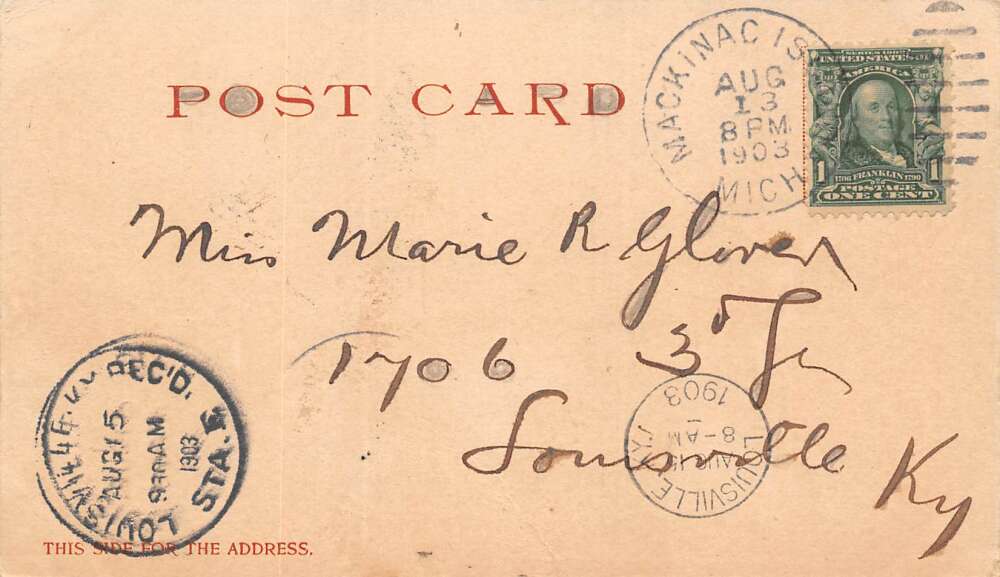 POST CARD
MACKINAC IS
AUG
13
8 PM
1903
MICH
SERIES 1902
UNITED STATES OF
AMERICA
1706 FRANKLIN 1790
1 1
POSTAGE
ONE CENT
Miss Marie R Glover
1706 3d St
Louisville Ky
LOUISVILLE, KY. REC'D.
AUG 15
930AM
1903
STA. E
LOUISVILLE KY.
AUG 15
8-AM
1903
THIS SIDE FOR THE ADDRESS.